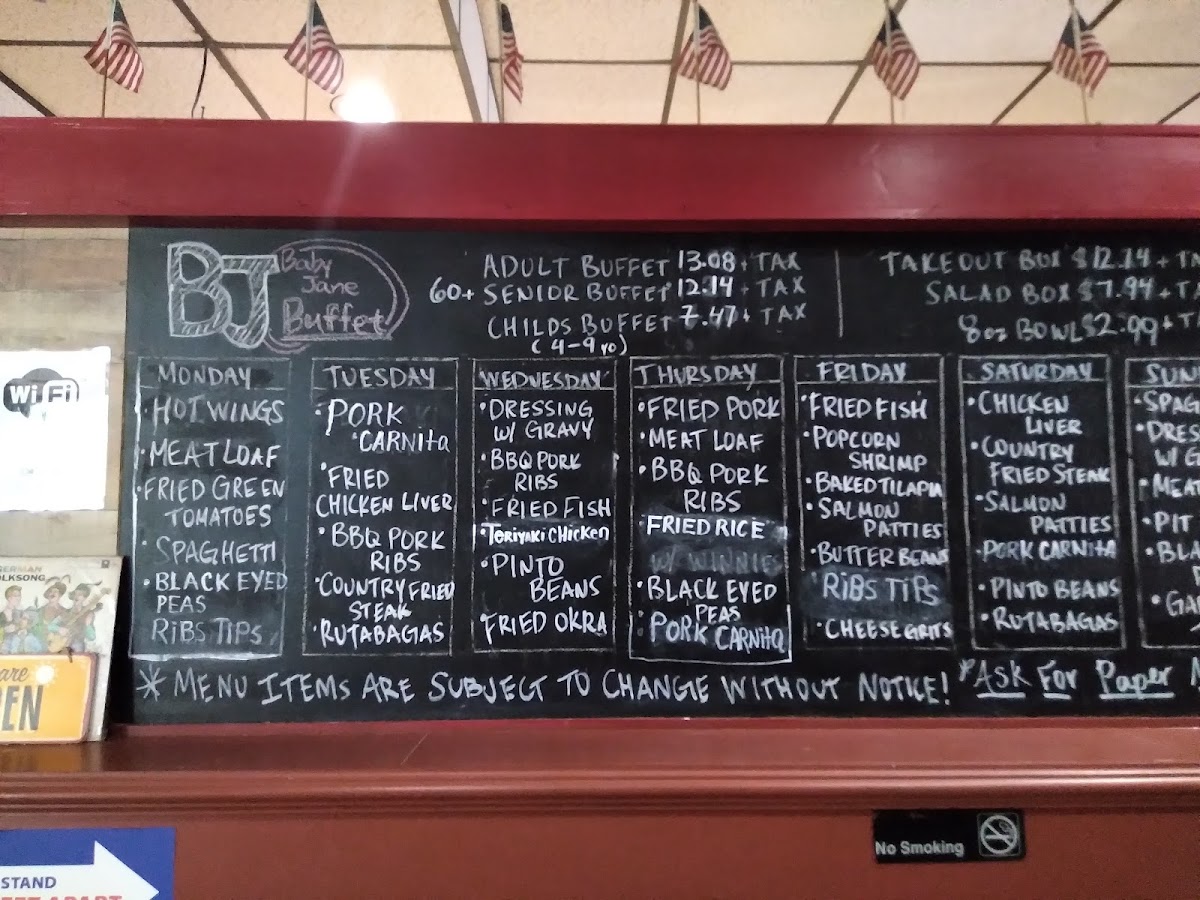 BJ
Baby
Jane
Buffet
ADULT BUFFET 13.08 + TAX
60+ SENIOR BUFFET 12.14 + TAX
CHILDS BUFFET 7.47 + TAX
(4-9 yo)
TAKEOUT BOX $12.14 + TA
SALAD BOX $7.94 + TA
8oz BOWL $2.99 + TA
MONDAY
• HOT WINGS
• MEAT LOAF
• FRIED GREEN
TOMATOES
• SPAGHETTI
• BLACK EYED
PEAS
RiBS TiPS
TUESDAY
• PORK
• CARNita
• FRIED
CHICKEN LIVER
• BBQ PORK
RIBS
• COUNTRY FRIED
STEAK
• RUTABAGAS
WEDNESDAY
• DRESSING
W/ GRAVY
• BBQ PORK
RIBS
• FRIED FISH
• Teriyaki CHicken
• PINTO
BEANS
FRIED OKRA
THURSDAY
• FRIED PORK
• MEAT LOAF
• BBQ PORK
RIBS
• FRIED RICE
W/ WINNIES
• BLACK EYED
PEAS
• PORK CARNita
FRIDAY
• FRIED FISH
• POPCORN
SHRIMP
• BAKED TILAPIA
• SALMON
PATTIES
• BUTTER BEANS
RiBS TiPS
• CHEESE GRITS
SATURDAY
• CHICKEN
LIVER
• COUNTRY
FRIED STEAK
• SALMON
PATTIES
• PORK CARNITA
• PINTO BEANS
• RUTABAGAS
SUN
• SPAG
• DRES
W/ G
• MEAT
• PIT
• BLA
• GA
* MENU ITEMS ARE SUBJECT TO CHANGE WITHOUT NOTICE!
* ASK FOR PAPER
Wi Fi
GERMAN
LKSONG
are
EN
STAND
No Smoking